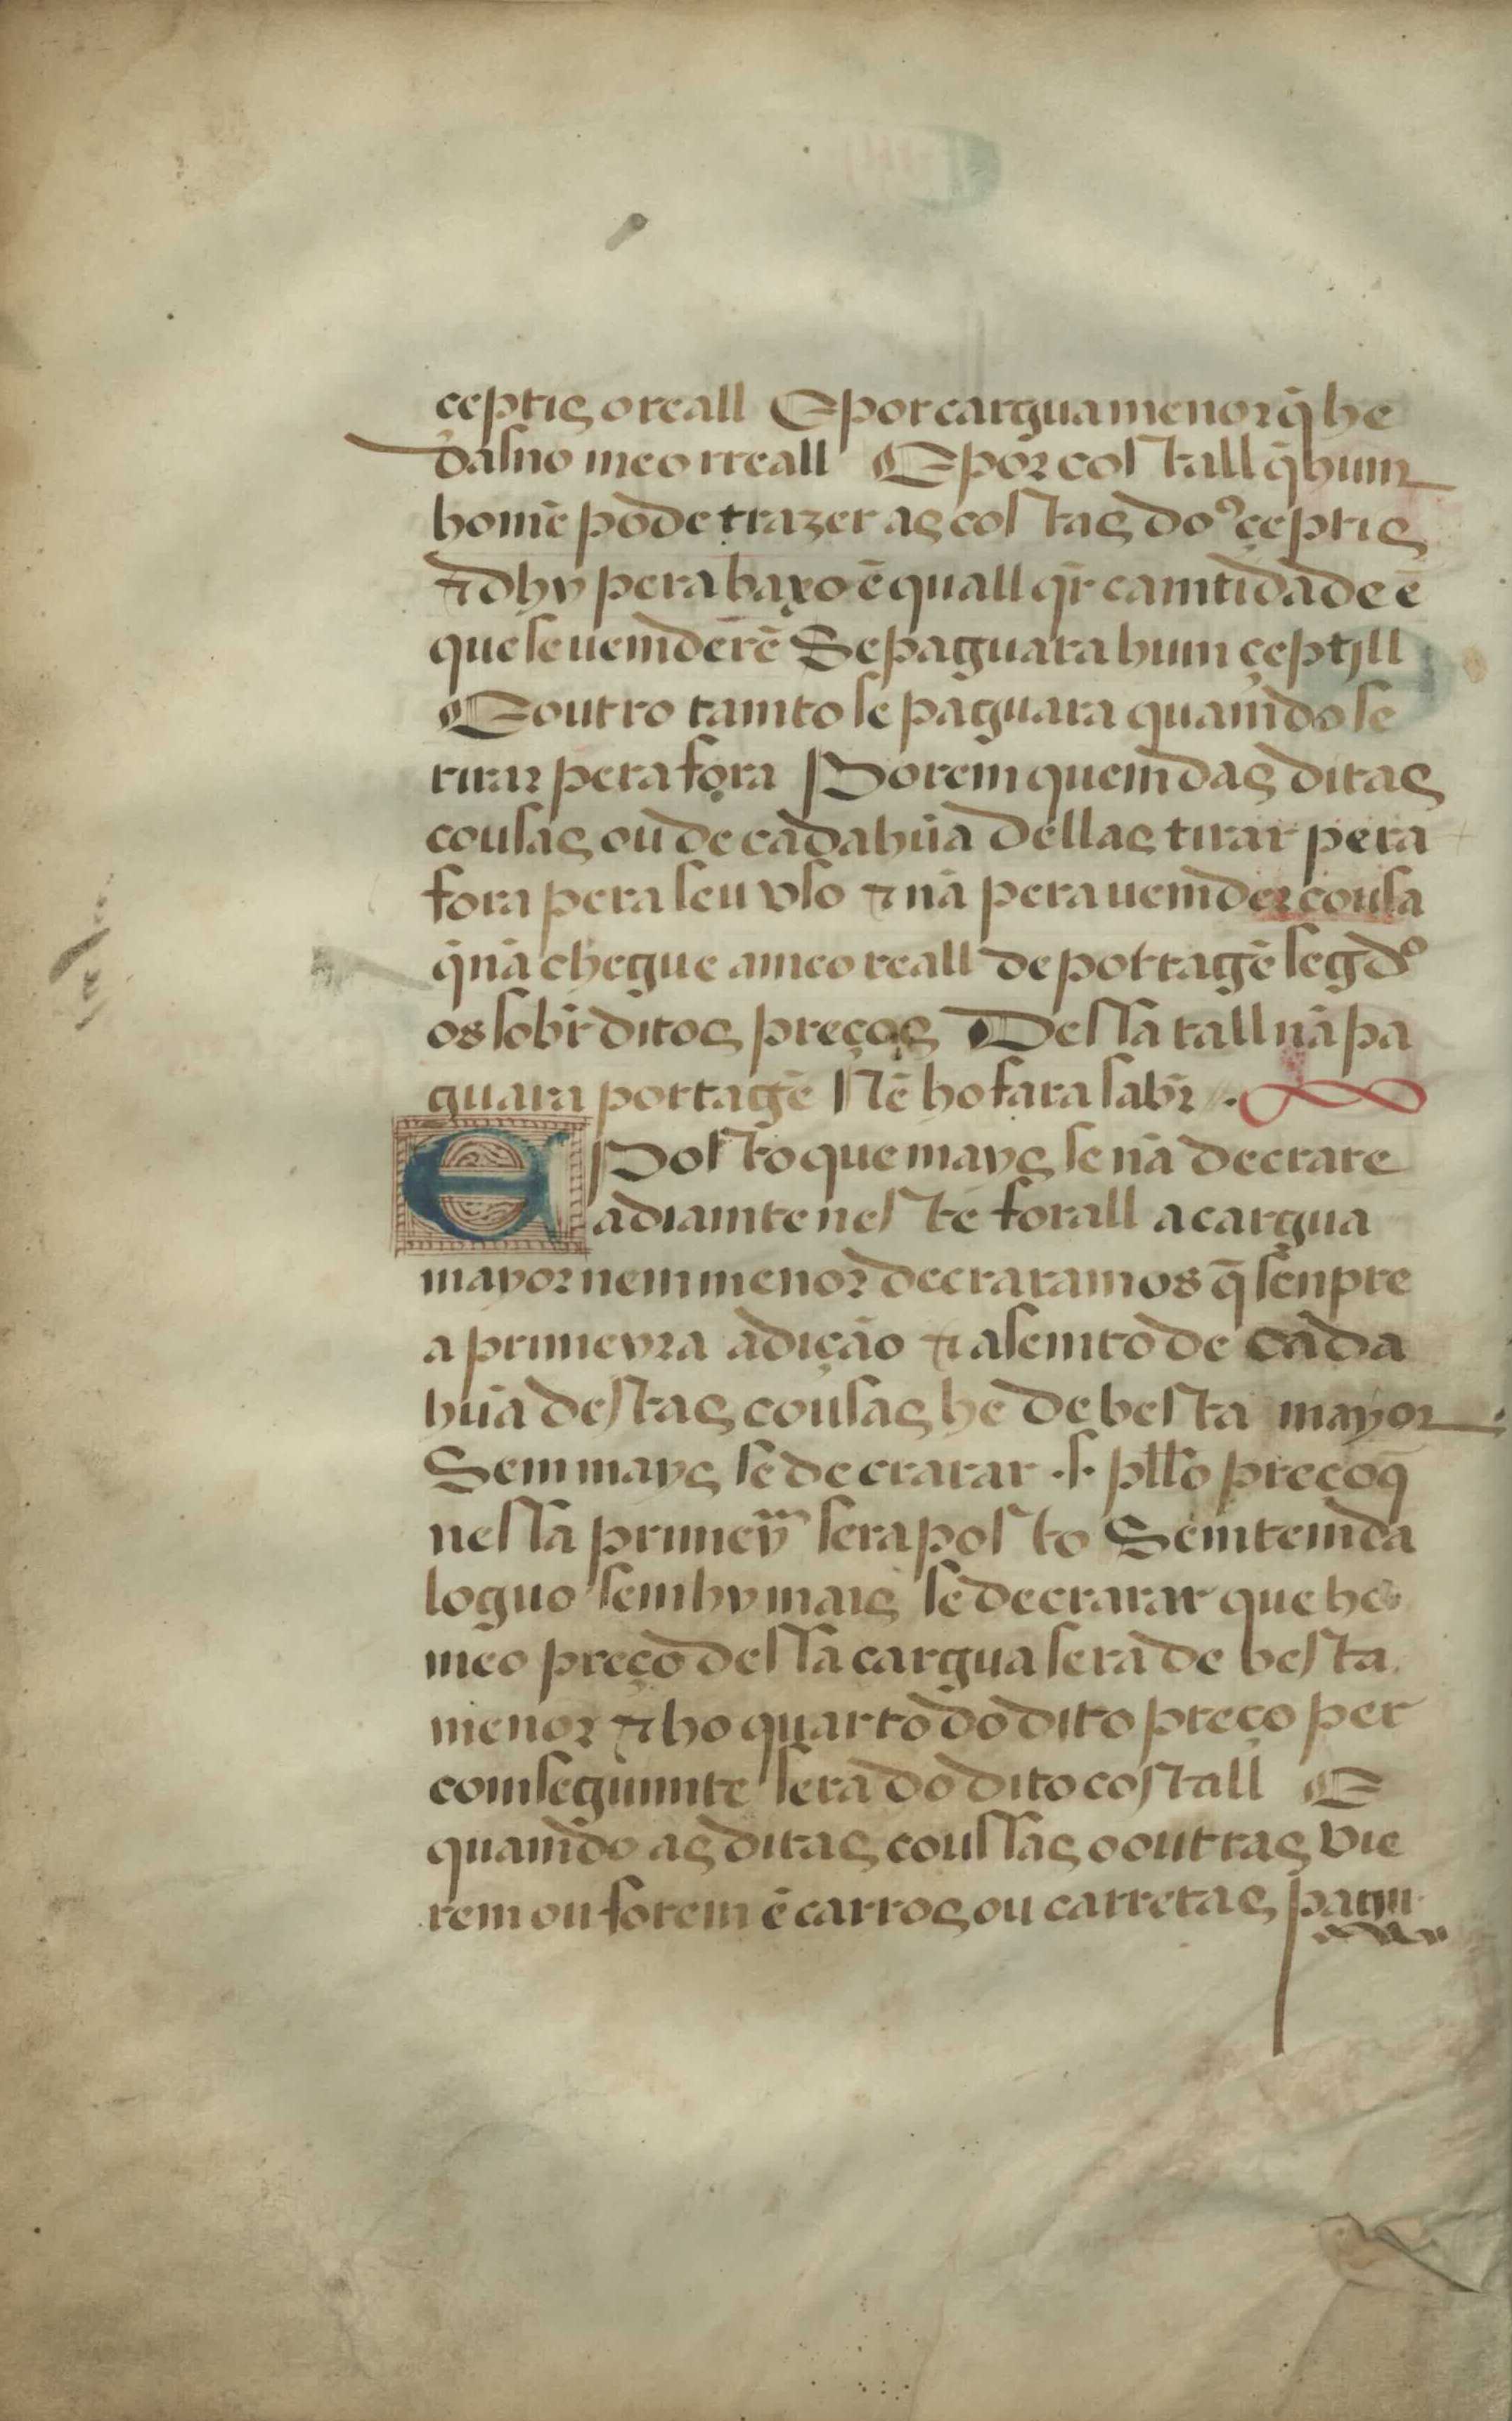 çeptis o reall E por cargua menor q̃ he
dasno meo rreall E por costall q̃ hum
home᷉ pode trazer as costas doꝰ çeptis
⁊ dhy pera baxo ẽ quall qr̃ camtidade ẽ
que se uemderẽ Se paguara hum çeptjll
E outro tamto se paguara quamdo se
tirar pera fora Porem quem das ditas
cousas ou de cada hũa dellas tirar pera
fora pera seu vso ⁊ nã pera uemder cousa
q̃ nã chegue a meo reall de portagẽ segdº
os sobr̃ditos preços Dessa tall nã pa
guara portagẽ Nẽ ho fara sabr̃ ⁓
E Posto que mays se nã decrare
adiamte neste forall a cargua
mayor nem menor decraramos q̃ senpre
a primeyra adição ⁊ asemto de cada
hũa destas cousas he de besta mayor
Sem mays se decrarar .s. pllo preço q̃
nessa primeyᵃ sera posto Se mtemda
loguo sem hy mais se decrarar que ho
meo preço dessa cargua sera de besta
menor ⁊ ho quarto do dito preço per
comseguimte sera do dito costall E
quamdo as ditas coussas o outras vie
rem ou forem ẽ carros ou carretas pagu